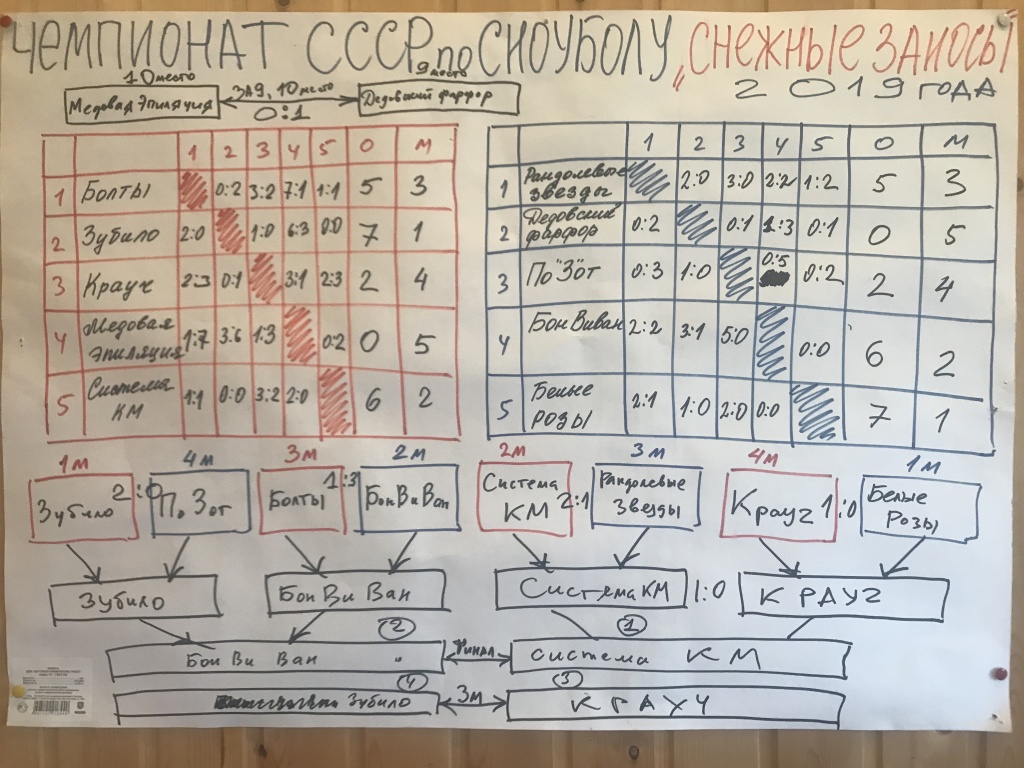 ЧЕМПИОНАТ СССР по СНОУБОЛУ „СНЕЖНЫЕ ЗАНОСЫ"
2019 ГОДА
10 место 9 место
Медовая Эпиляция ЗА 9, 10 место Дедовский фарфор
0:1
1 2 3 4 5 О М
1 Болты 0:2 3:2 7:1 1:1 5 3
2 Зубило 2:0 1:0 6:3 0:0 7 1
3 Крауч 2:3 0:1 3:1 2:3 2 4
4 Медовая эпиляция 1:7 3:6 1:3 0:2 0 5
5 Система КМ 1:1 0:0 3:2 2:0 6 2
1 2 3 4 5 О М
1 Рандолевые звезды 2:0 3:0 2:2 1:2 5 3
2 Дедовский фарфор 0:2 0:1 1:3 0:1 0 5
3 По"З"от 0:3 1:0 0:5 0:2 2 4
4 Бон Виван 2:2 3:1 5:0 0:0 6 2
5 Белые розы 2:1 1:0 2:0 0:0 7 1
1м 4м 3м 2м 2м 3м 4м 1м
Зубило 2:0 По Зот Болты 1:3 Бон Ви Ван Система КМ 2:1 Рандолевые Звезды Крауч 1:0 Белые Розы
Зубило Бон Ви Ван Система КМ 1:0 КРАУЧ
2 1
Бон Ви Ван Финал система КМ
4 3
Зубило 3м КРАУЧ